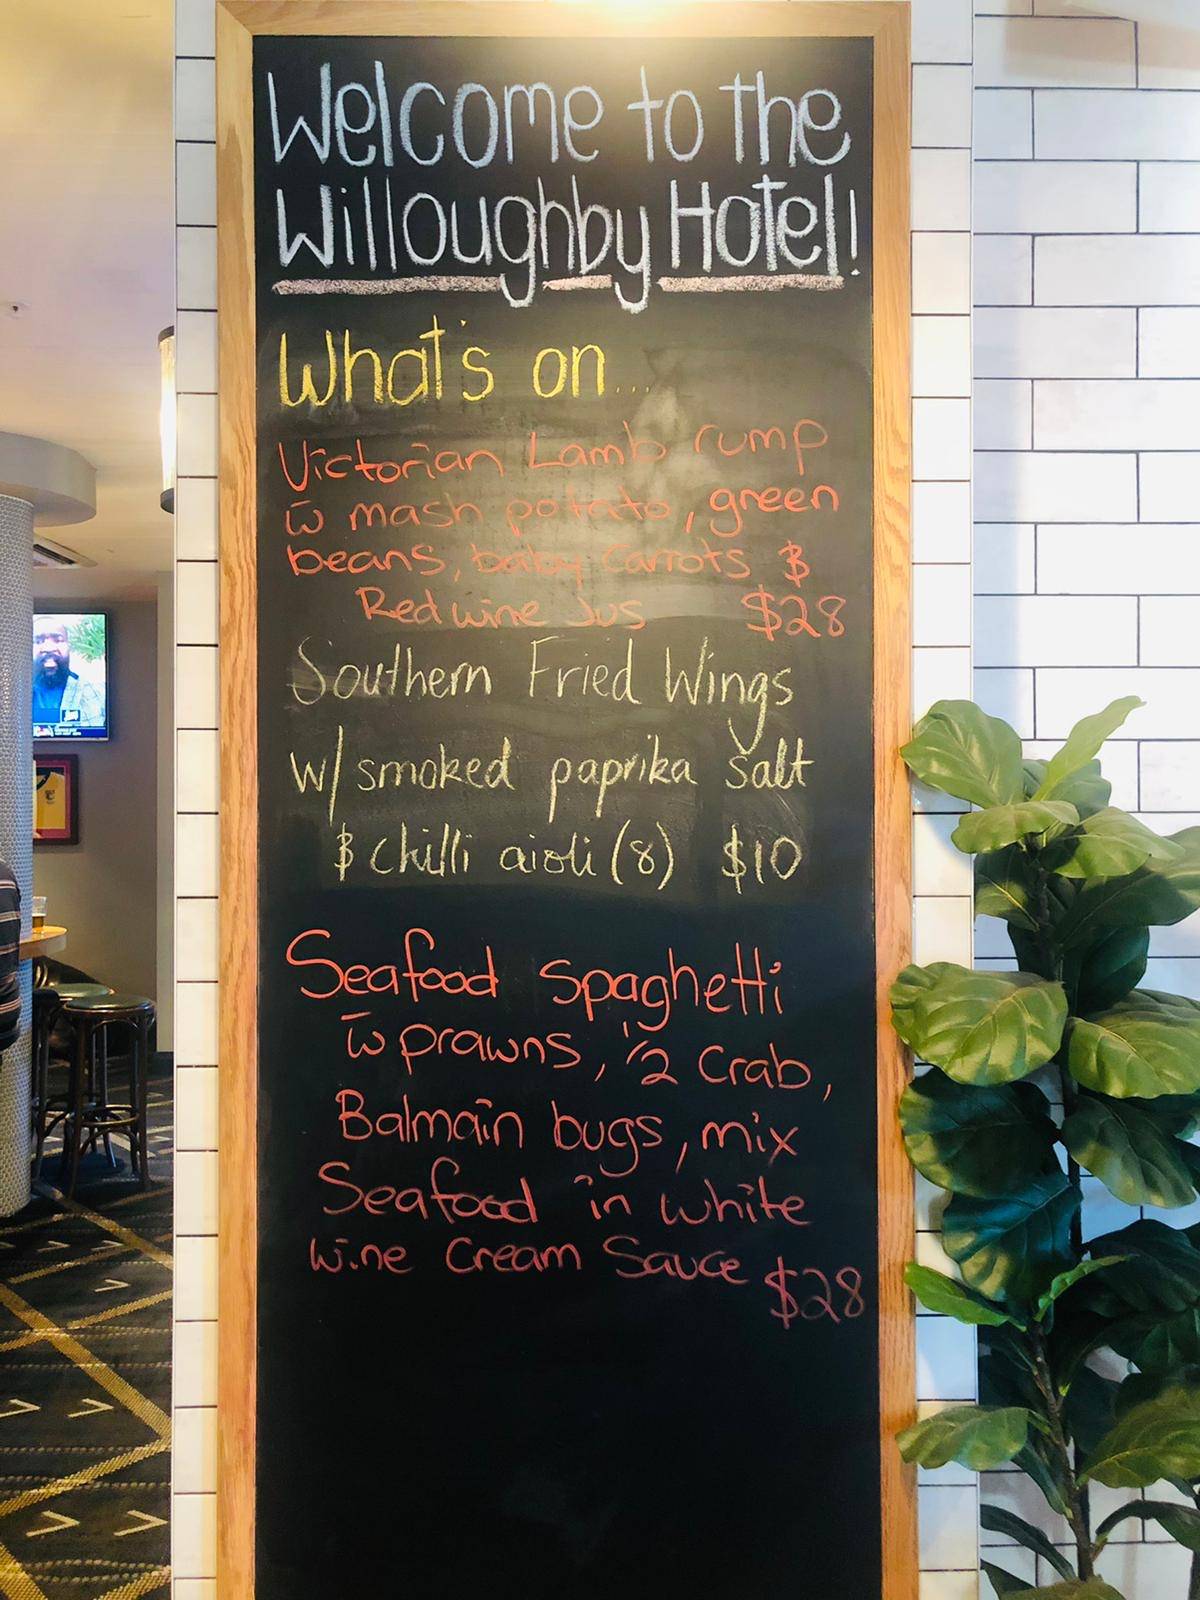 Welcome to the
Willoughby Hotel!
What's on...
Victorian Lamb rump
w̄ mash potato, green
beans, baby carrots $
Red wine Jus $28
Southern Fried Wings
w/ smoked paprika salt
$ chilli aioli (8) $10
Seafood spaghetti
w̄ prawns, 1/2 Crab,
Balmain bugs, mix
Seafood in white
wine Cream Sauce $28